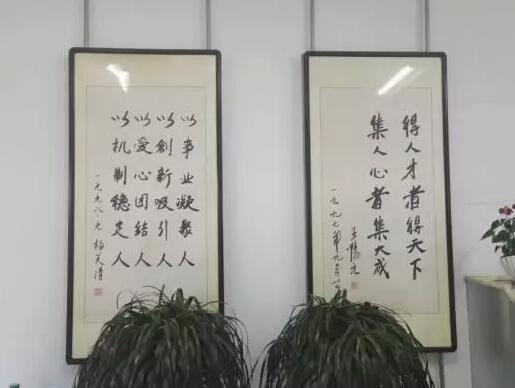 得人才者得天下
集人心者集大成
一九九七年九月
以事业凝聚人
以創新吸引人
以愛心团结人
以机制稳定人
一九九八.九